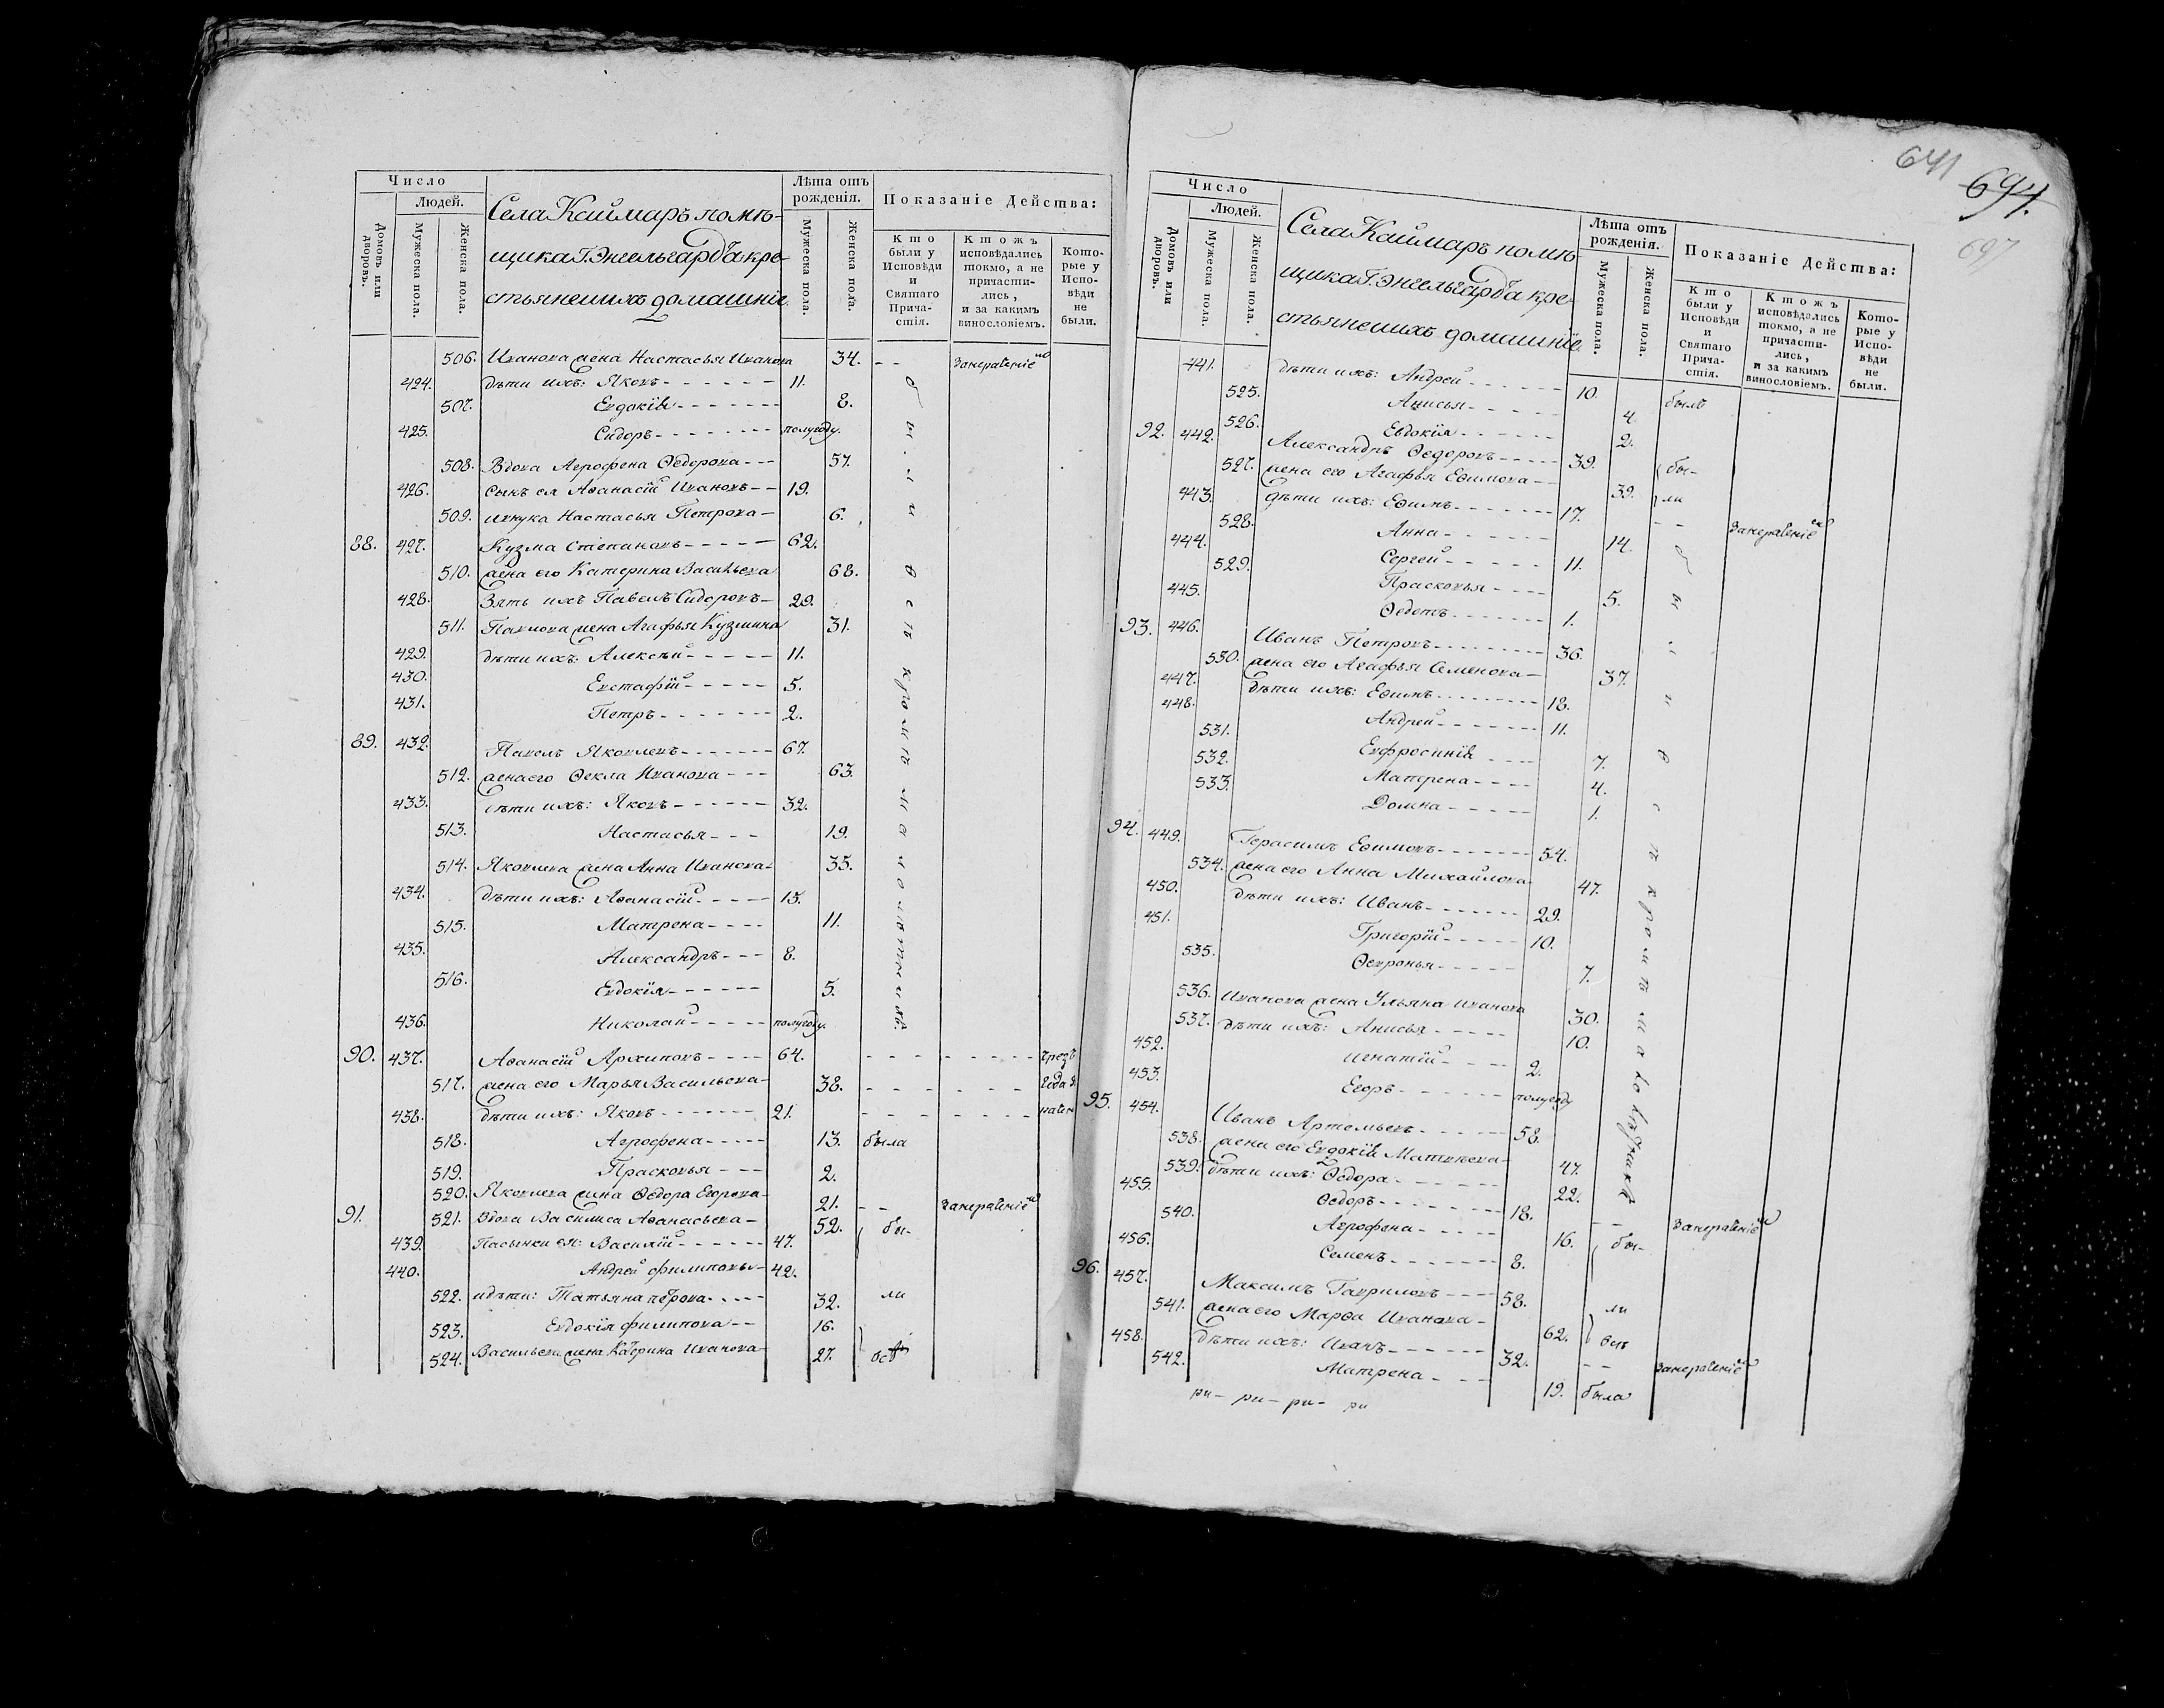 641
694.
697
Число
Людей.
Домовъ или дворовъ.
Мужеска пола.
Женска пола.
Села Каймаръ помѣ-
щика Г. Энгельгардта кре-
стьяне и ихъ домашніе
Лѣта отъ рожденія.
Мужеска пола.
Женска пола.
Показаніе Действа:
Кто были у Исповѣди и Святаго Прича-стія.
Ктожъ исповѣдались токмо, а не причасти-лись, и за какимъ винословіемъ.
Кото-рые у Испо-вѣди не были.
506. Иванова жена Настасья Иванова 34. - -
424. дѣти ихъ: Яковъ 11.
507. Евдокія 8.
425. Сидоръ полугоду.
508. Вдова Агрофена Ѳедорова 57.
426. сынъ ея Аѳанасій Ивановъ 19.
509. внука Настасья Петрова 6.
88. 427. Кузма Степановъ 62.
510. жена его Катерина Васильева 68.
428. Зять ихъ Павелъ Сидоровъ 29.
511. Павлова жена Агафья Кузмина 31.
429. дѣти ихъ: Алексѣй 11.
430. Евстафій 5.
431. Петръ 2.
89. 432. Павелъ Яковлевъ 67.
512. жена его Ѳекла Иванова 63.
433. дѣти ихъ: Яковъ 32.
513. Настасья 19.
514. Яковлева жена Анна Иванова 35.
434. дѣти ихъ: Аѳанасій 15.
515. Матрена 11.
435. Александръ 8.
516. Евдокія 5.
436. Николай полугоду.
были всѣ кромѣ малолѣтныхъ.
90. 437. Аѳанасій Архиповъ 64.
517. жена его Марья Васильева 38.
438. дѣти ихъ: Яковъ 21.
518. Агрофена 13. была
519. Прасковья 2.
520. Яковлева жена Ѳедора Егорова 21. - -
91. 521. Вдова Василиса Аѳанасьева 52. бы-
439. Пасынки ея: Василій 47.
440. Андрей Филиповы 42.
522. и дѣти: Татьяна Петрова 32. ли
523. Евдокія Филипова 16.
524. Васильева жена Катерина Иванова 27. всѣ
Число
Людей.
Домовъ или дворовъ.
Мужеска пола.
Женска пола.
Села Каймаръ помѣ-
щика Г. Энгельгардта кре-
стьяне и ихъ домашніе
Лѣта отъ рожденія.
Мужеска пола.
Женска пола.
Показаніе Действа:
Кто были у Исповѣди и Святаго Прича-стія.
Ктожъ исповѣдались токмо, а не причасти-лись, и за какимъ винословіемъ.
Кото-рые у Испо-вѣди не были.
441. дѣти ихъ: Андрей 10. былъ
525. Анисья 4.
526. Евдокія 2.
92. 442. Александръ Ѳедоровъ 39. бы-
527. жена его Агафья Еѳимова 39. ли
443. дѣти ихъ: Еѳимъ 17. - -
528. Анна 14.
444. Сергей 11.
529. Прасковья 5.
445. Ѳедотъ 1.
93. 446. Иванъ Петровъ 36.
530. жена его Агафья Семенова 37.
447. дѣти ихъ: Еѳимъ 18.
448. Андрей 11.
531. Евфросинія 7.
532. Матрена 4.
533. Домна 1.
94. 449. Герасимъ Еѳимовъ 54.
534. жена его Анна Михайлова 47.
450. дѣти ихъ: Иванъ 29.
451. Григорій 10.
535. Ѳевронья 7.
536. Иванова жена Ульяна Иванова 30.
537. дѣти ихъ: Анисья 10.
452. Игнатій 2.
453. Егоръ полугоду
были всѣ кромѣ
95. 454. Иванъ Артемьевъ 58.
538. жена его Евдокія Матвѣева 47.
539. дѣти ихъ: Ѳедора 22.
455. Ѳедоръ 18. - -
540. Агрофена 16. бы-
456. Семенъ 8.
96. 457. Максимъ Гавриловъ 58. ли
541. жена его Марѳа Иванова 62. всѣ
458. дѣти ихъ: Иванъ 32. - -
542. Матрена 19. была